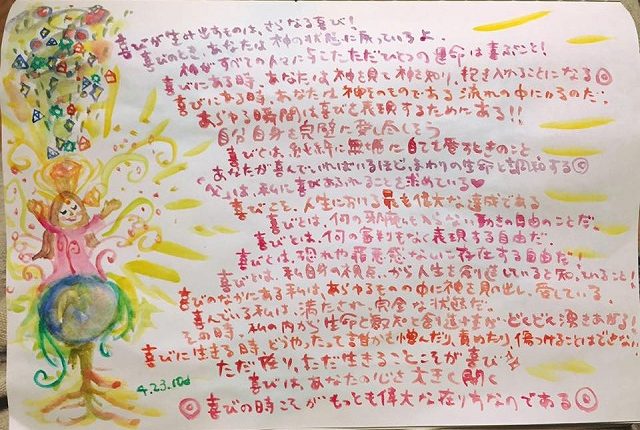 喜びが生み出すものは、さらなる喜び!
喜びのとき、あなたは神の状態に戻っているよ。
神がすべての人々に与えたただひとつの運命は喜ぶこと!
喜びにある時、あなたは神を見て神を知り、抱き入れることになる◎
喜びにある時、あなたは神そのものである流れの中にいるのだ。
あらゆる瞬間は喜びを表現するためにある!!
自分自身を完璧に愛し尽そう
喜びとは、無邪気に
あなたが喜んでいればいるほど、まわりの生命と調和する◎
「父」は、私に喜びあふれることを求めている♥
喜びこそ、人生における最も偉大な達成である
喜びとは、何の邪魔も入らない動きの自由のことだ。
喜びとは、何の審判もなく表現する自由だ。
喜びとは、恐れや罪悪感なしに存在する自由だ!
喜びとは、私自身の視点から人生を創り出していると知っていること!
喜びのなかにある私は、あらゆるものの中に神を見い出し、愛している。
喜んでいる私は、満たされ、完全な状態だ。
その時、私の内から生命と叡知と創造する力がどんどん湧きあがる!
喜びに生きる時、どうやったって誰かを憎んだり、責めたり、傷つけることはできない。
ただ在り、ただ生きることこそが喜び☆
喜びは、あなたの心を大きく開く
4.23.
◎喜びの時こそがもっとも偉大な在り方なのである◎